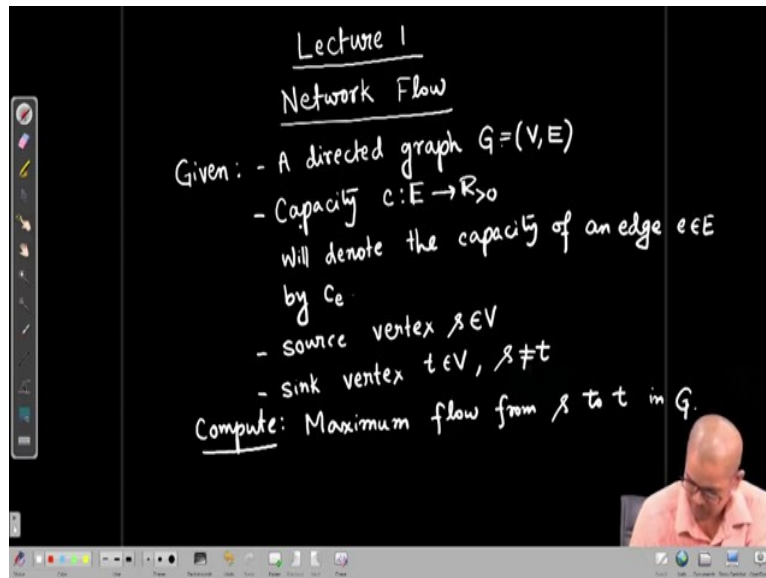 Lecture 1
Network Flow
Given: - A directed graph G=(V,E)
- Capacity c:E→ℝ>0
will denote the capacity of an edge e∈E
by cₑ.
- source vertex s∈V
- sink vertex t∈V, s≠t
Compute: Maximum flow from s to t in G.